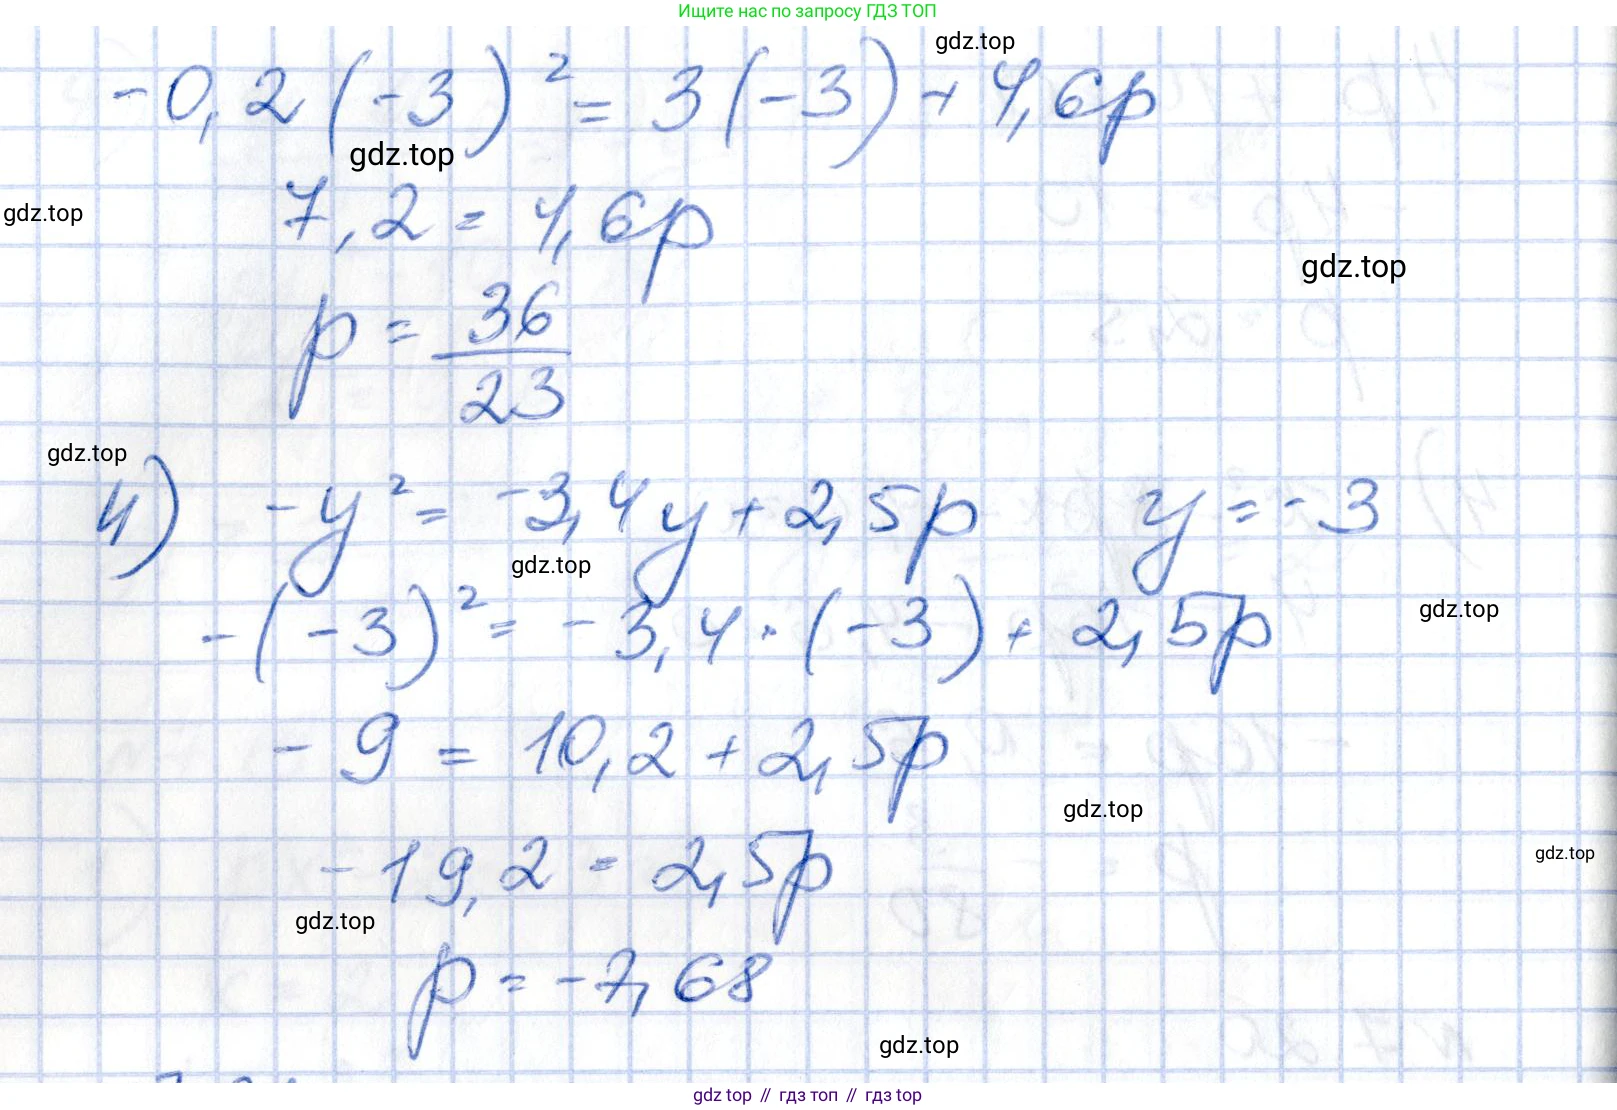 Ищите нас по запросу ГДЗ ТОП
gdz.top
-0,2(-3)² = 3(-3) + 4,6p
gdz.top
7,2 = 4,6p
gdz.top
gdz.top
p = 36/23
gdz.top
4) -y² = -3,4y + 2,5p y = -3
gdz.top
-(-3)² = -3,4·(-3) + 2,5p
gdz.top
-9 = 10,2 + 2,5p
gdz.top
gdz.top
-19,2 = 2,5p
gdz.top
p = -7,68
gdz.top
gdz top // гдз топ // гдз top